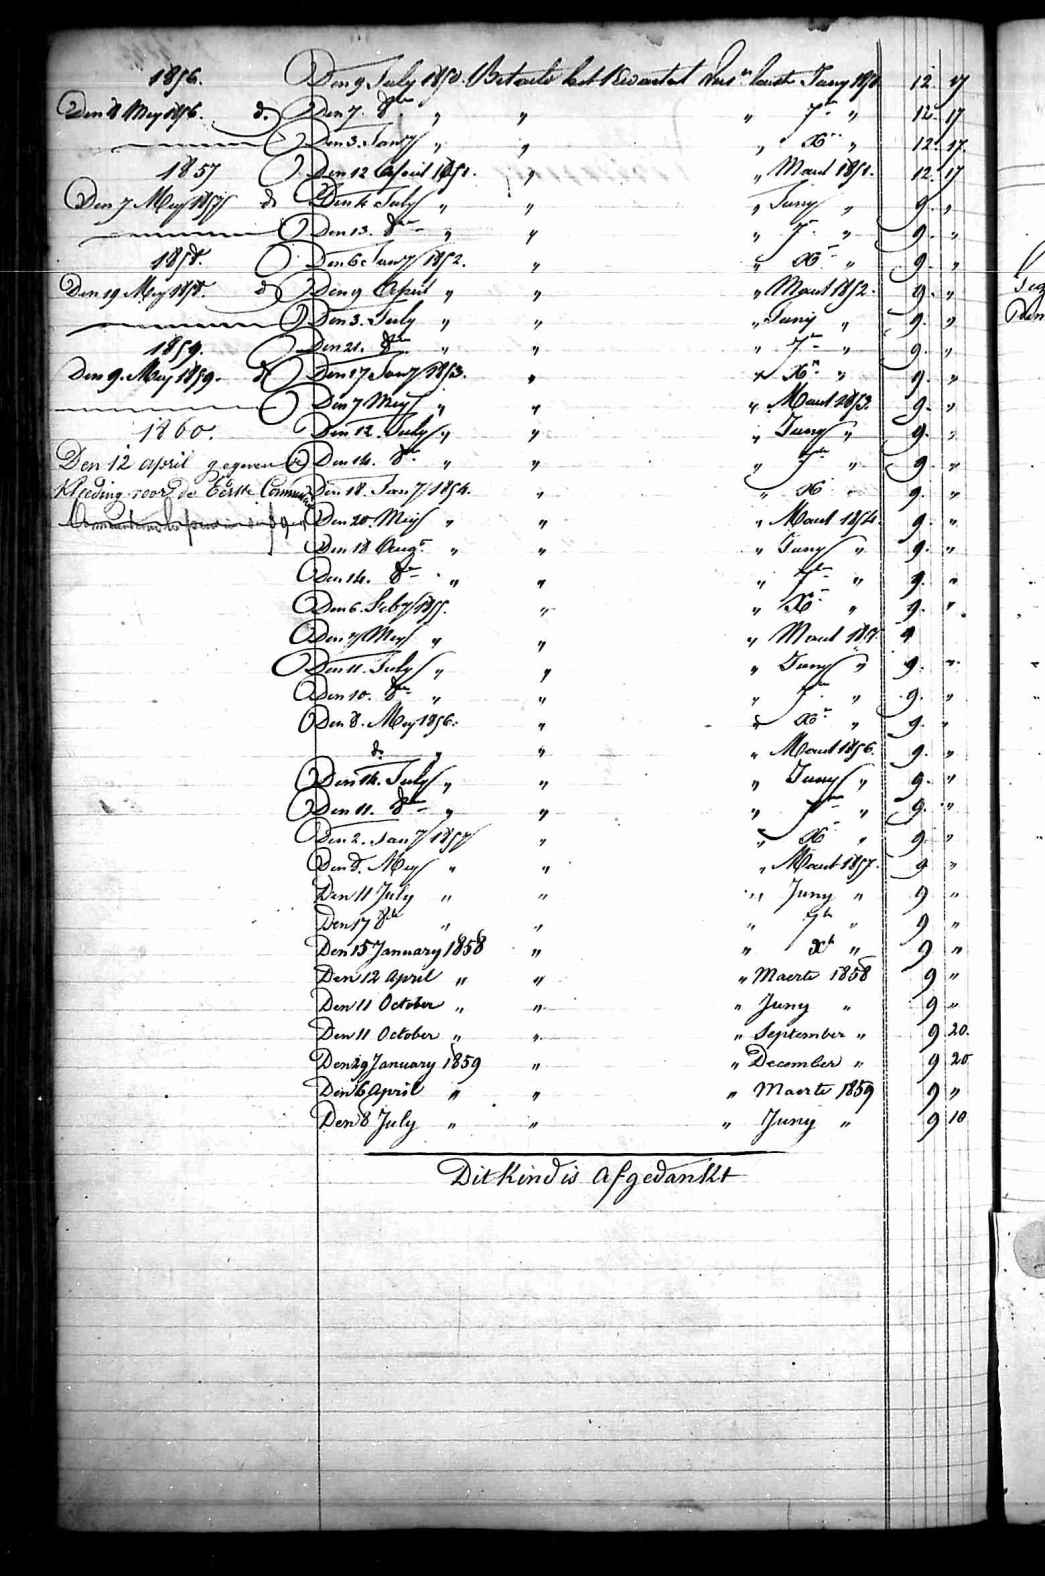 1856.
Den 8 Mey 1856. do
1857
Den 7 Mey 1857 do
1858.
Den 19 Mey 1858. do
1859.
Den 9. Mey 1859. do
1860.
Den 12 april gegeven de
Kleeding voor de Eerste
Den 9 July 1850. Betaele het Kwartael laeste Juny 1850 12. 17
Den 7. 8br " " " 7br " 12. 17
Den 3. Jany " " " Xbr " 12. 17
Den 12 April 1851. " " Maert 1851. 12. 17
Den 4 July " " " Juny " 9. "
Den 13. 8br " " " 7br " 9. "
Den 6 Jany 1852. " " Xbr " 9. "
Den 9 April " " " Maert 1852. 9. "
Den 3. July " " " Juny " 9. "
Den 21. 8br " " " 7br " 9. "
Den 17 Jany 1853. " " Xbr " 9. "
Den 7 Mey " " " Maert 1853. 9. "
Den 12. July " " " Juny " 9. "
Den 14. 8br " " " 7br " 9. "
Den 18. Jany 1854. " " Xbr " 9. "
Den 20. Mey " " " Maert 1854. 9. "
Den 18 Augt " " " Juny " 9. "
Den 14. 8br " " " 7br " 9. "
Den 6. Feby 1855. " " Xbr " 9. "
Den 7 Mey " " " Maert 9
Den 11. July " " " Juny " 9. "
Den 10. 8br " " " 7br " 9. "
Den 8. Mey 1856. " " Xbr " 9. "
do " " " Maert 1856. 9. "
Den 14. July " " " Juny " 9. "
Den 11. 8br " " " 7br " 9. "
Den 2. Jany 1857 " " Xbr " 9. "
Den 8. Mey " " " Maert 1857. 9 "
Den 11 July " " " Juny " 9 "
Den 17 8br " " " 7br " 9 "
Den 15 January 1858 " " Xbr " 9 "
Den 12 april " " " Maerte 1858 9 "
Den 11 October " " " Juny " 9 "
Den 11 October " " " September " 9 20.
Den 29 January 1859 " " December " 9 20
Den 6 april " " " Maerte 1859 9 "
Den 8 July " " " Juny " 9 10
Dit Kind is afgedankt